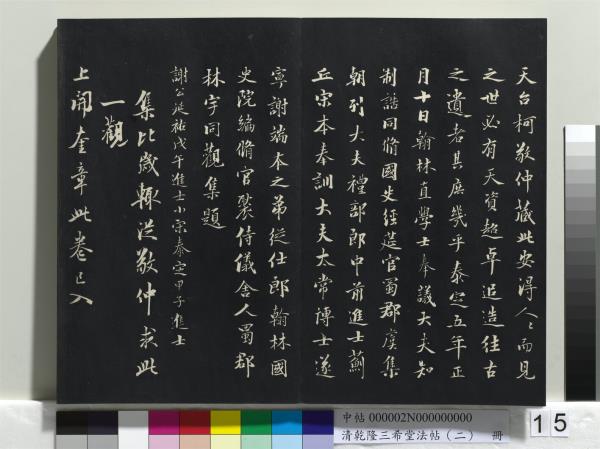 天台柯敬仲藏此安得人々而見
之世必有天資超卓追造往古
之遺者其庶幾乎泰定五年正
月十日翰林直學士奉議大夫知
制誥同脩國史經筵官蜀郡虞集
朝列大夫禮部郎中前進士薊
丘宋本奉訓大夫太常博士遂
寧謝端本之弟從仕郎翰林國
史院編脩官褧侍儀舍人蜀郡
林宇同觀集題
謝公延祐戊午進士小宋泰定甲子進士
集比歲輙從敬仲求此
一觀
上開奎章此卷已入
中帖 000002N000000000
清乾隆三希堂法帖（二） 冊
15